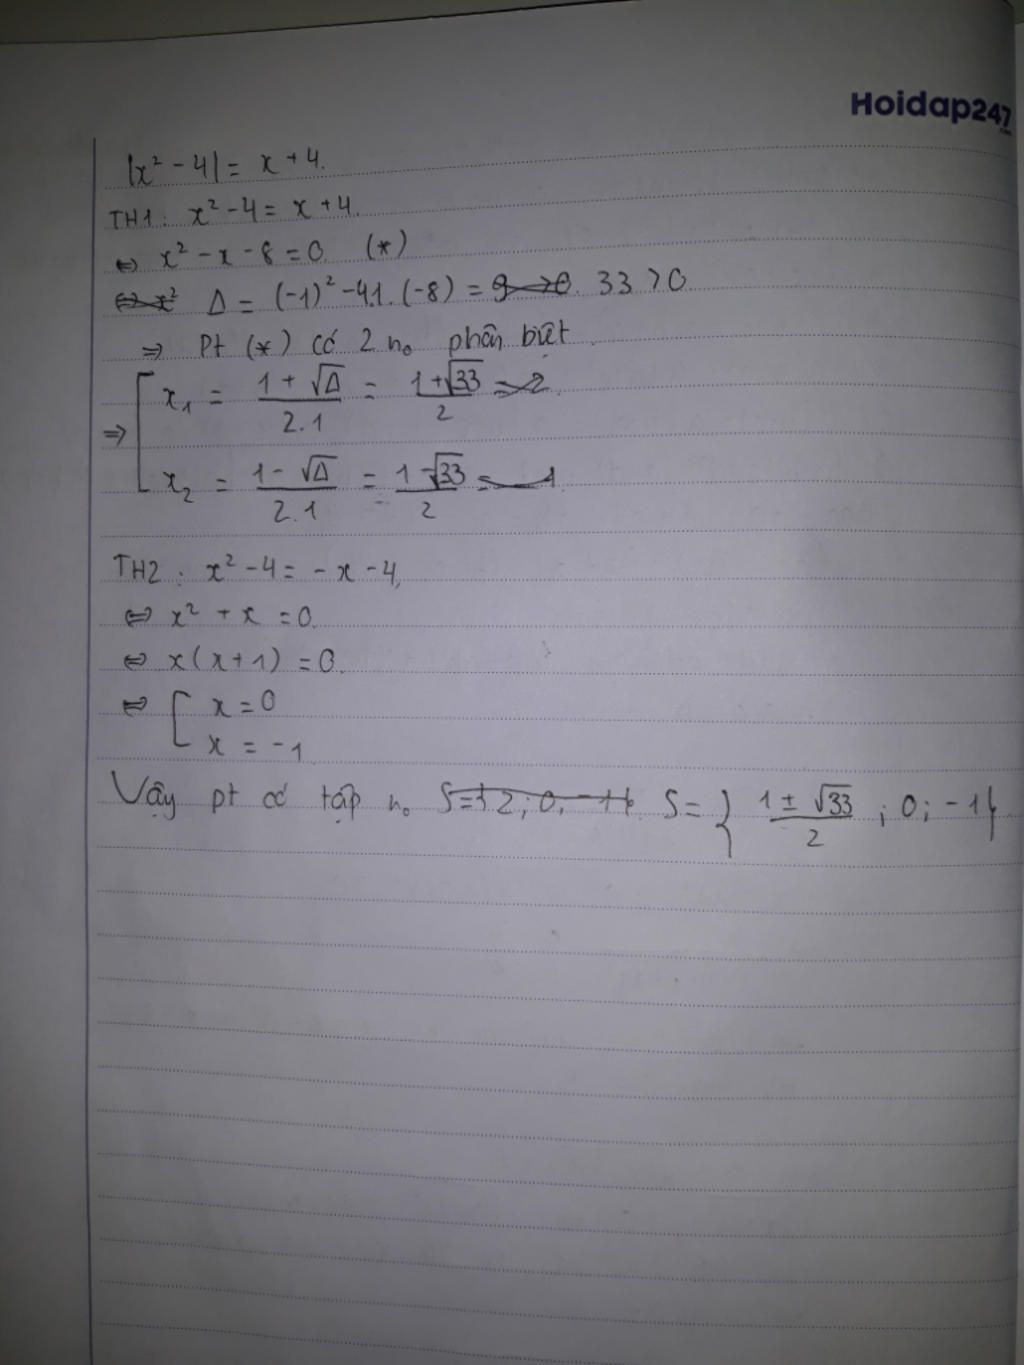 Hoidap247
|x² - 4| = x + 4.
TH1: x² - 4 = x + 4.
⇔ x² - x - 8 = 0 (*)
⇔ x² Δ = (-1)² - 4.1.(-8) = 9 > 0. 33 > 0
⇒ Pt (*) có 2 n₀ phân biệt.
⇒ [ x₁ = (1 + √Δ)/2.1 = (1 + √33)/2 = 2
x₂ = (1 - √Δ)/2.1 = (1 - √33)/2 = -1
TH2: x² - 4 = - x - 4.
⇔ x² + x = 0.
⇔ x(x + 1) = 0.
⇔ [ x = 0
x = -1
Vậy pt có tập n₀ S = {2; 0; -1}. S = { (1 ± √33)/2 ; 0; -1}